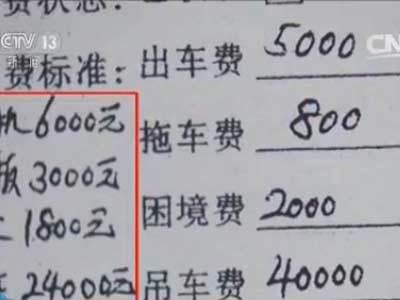 CCTV 13
CN
费状态:
费标准: 出车费 5000
6000元 拖车费 800
板 3000元
1800元 困境费 2000
24000元 吊车费 40000